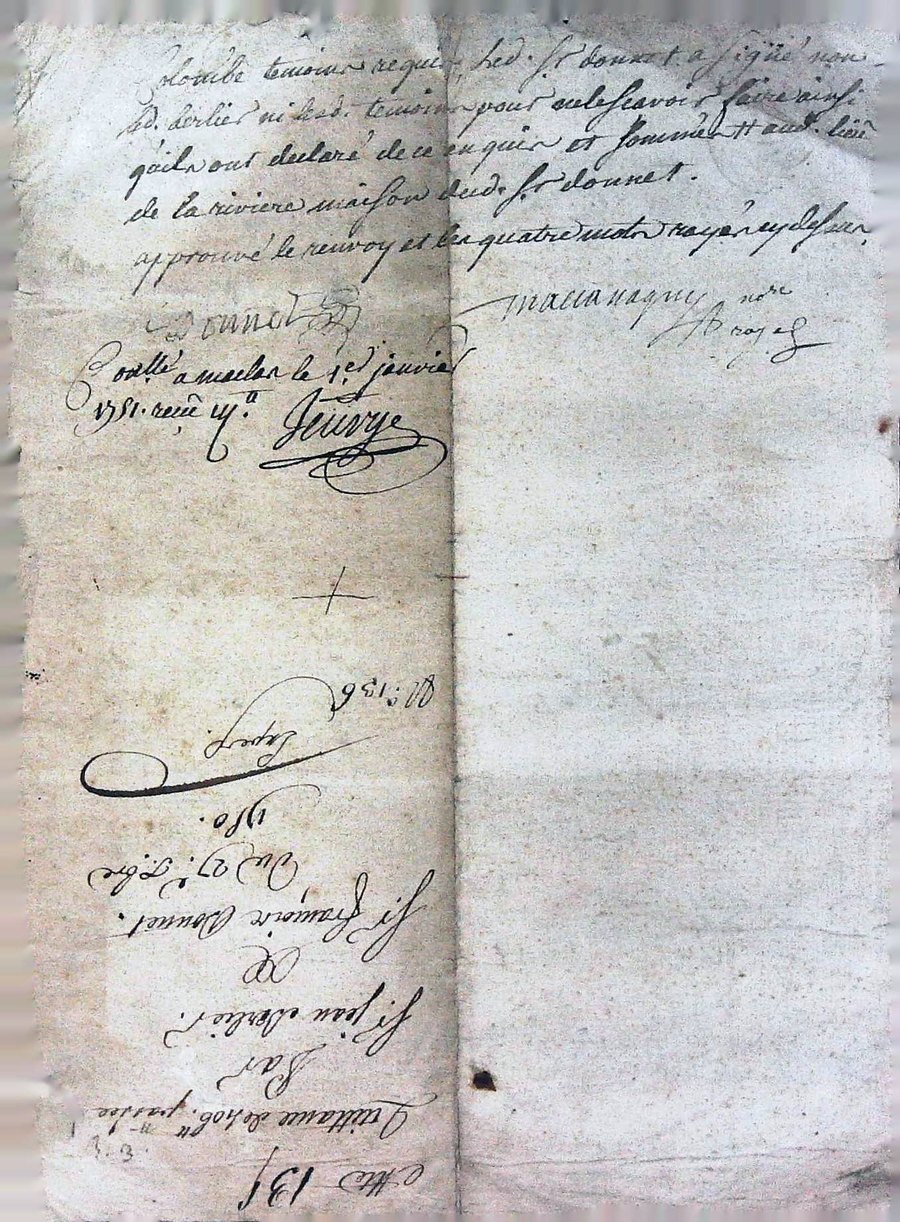 Colombe temoins requis, led. Sr donnet a signé non
led. derlier ni lesd. temoins pour ne le scavoir faire ainsi
qu'ils ont declaré de ce enquis et sommés # aud. lieu
de la riviere maison dud. Sr donnet.
approuvé le renvoy et les quatre mots rayés cy dessus,
Donnet
nore
royal
Conllé a maclas le 1er janvier
1751. receu
N.° 136
1750.
Du 27.e Xbre
Sr françois Donnet.
&
Sr jean Derlier.
Par
Quittance de passée
Cotte 135